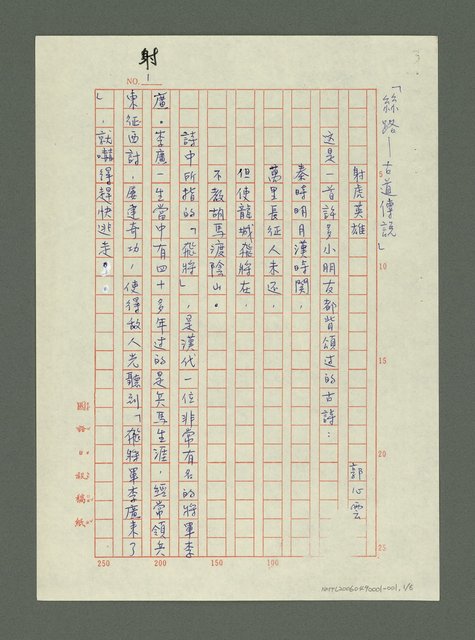 射
NO. 1
「絲路—古道傳說」
射虎英雄
郭心雲
這是一首許多小朋友都背頌过的古詩:
秦時明月漢時關,
萬里長征人未还,
但使龍城飛將在,
不教胡馬渡陰山。
詩中所指的「飛將」,是漢代一位非常有名的將軍李
廣。李廣一生當中有四十多年过的是兵馬生涯,經常領兵
東征西討,屡建奇功,使得敵人光聽到「飛將軍李廣來了
」,就嚇得趕快逃走。
5
10
15
20
25
50
100
150
200
250
國語日報稿紙
NMTL20060490001-001, 1/6